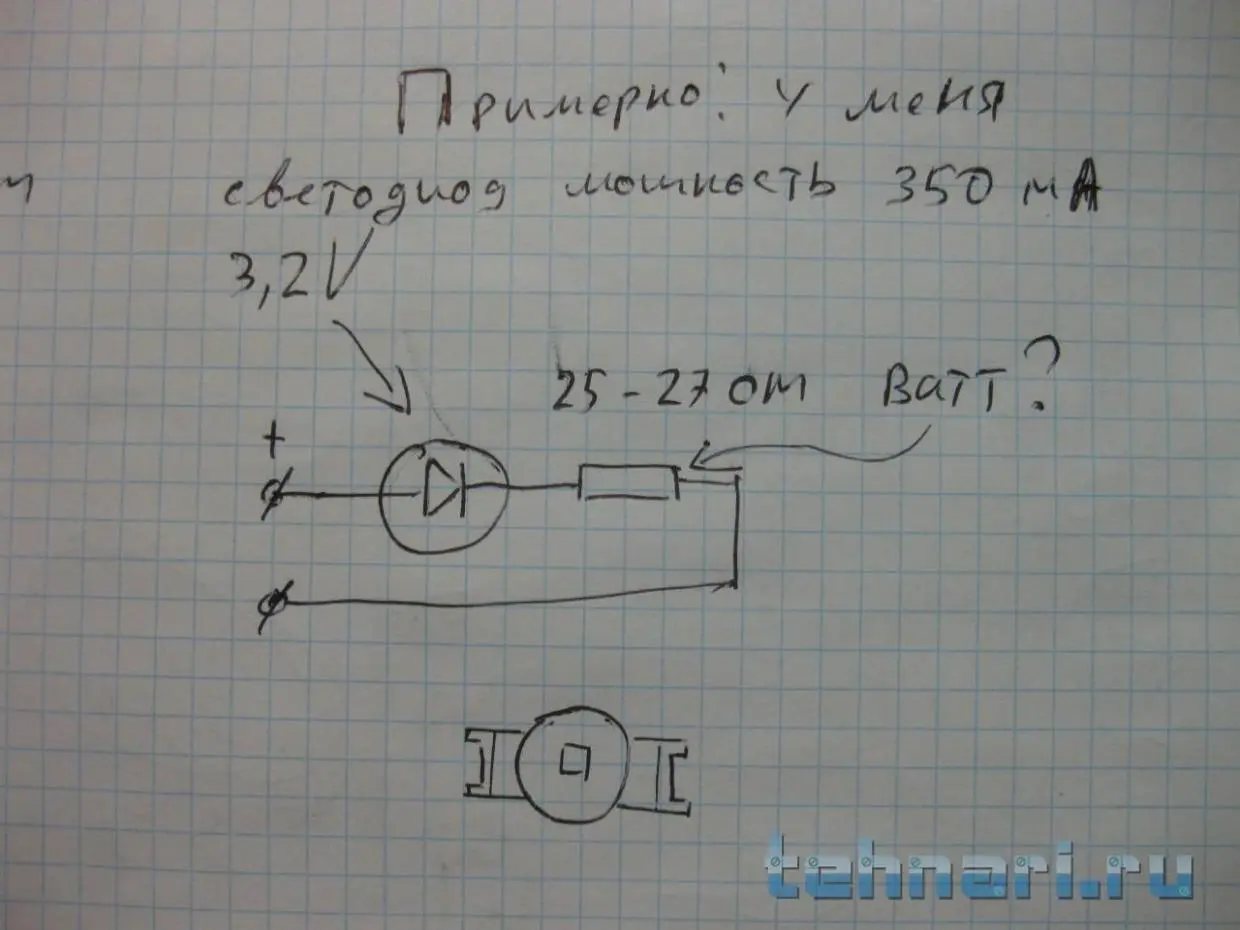 Примерно: у меня
светодиод мошность 350 мА
3,2V
25-27 ом Ватт?
+
tehnari.ru